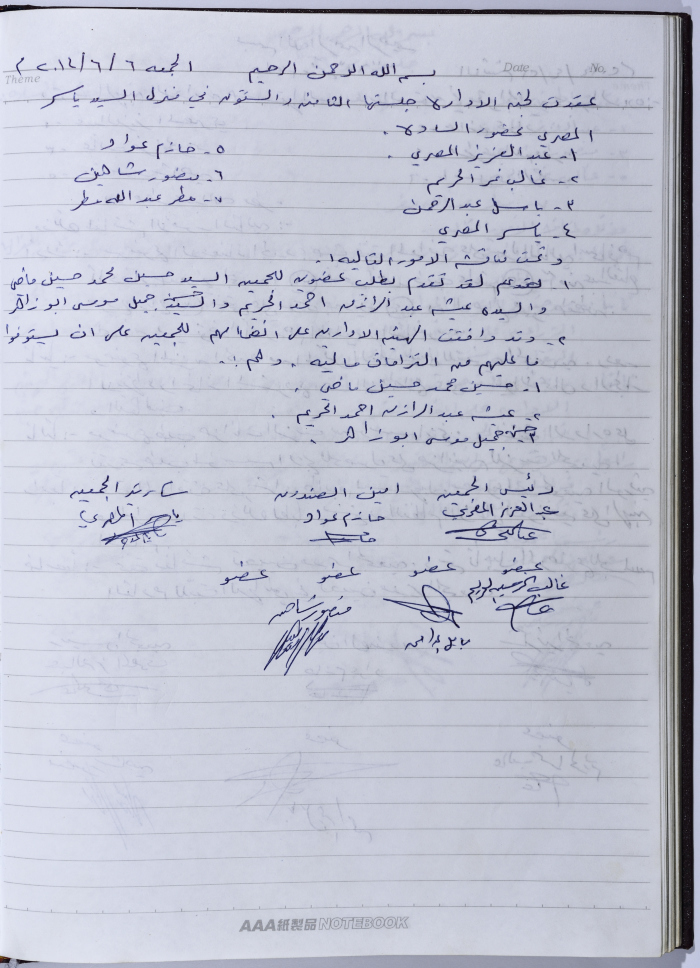 No. Date Theme
بسم الله الرحمن الرحيم الجمعه ٦/٦/٢٠١٤ م
عقدت لجنة الادارة جلستها الثامنه والستون في منزل السيد ياسر
المصري بحضور السادة .
١- عبد العزيز المصري . ٥- حازم عواد
٢- غالب نمر الحريم ٦- منصور شاهين
٣- باسل عبد الرحمن ٧- مطر عبد الله مطر
٤- ياسر المصري
وتمت مناقشة الامور التاليه :.
١- لقد تقدم بطلب عضوية للجمعيه السيد حسين محمد حسين ماضي
والسيده عيشه عبد الرازق احمد الحريم والسيد حسين جميل موسى ابو زاهر
٢- وقد وافقت الهيئه الادارية على انضمامهم للجمعيه على ان يستوفوا
ما عليهم من التزامات ماليه . وهم :.
١. حسين محمد حسين ماضي .
٢- عيشه عبد الرازق احمد الحريم .
٣- حسين جميل موسى ابو زاهر .
رئيس الجمعيه امين الصندوق سكرتير الجمعيه
عبد العزيز المصري حازم عواد ياسر المصري
عضو عضو عضو عضو
منصور شاهين
AAA紙製品 NOTEBOOK